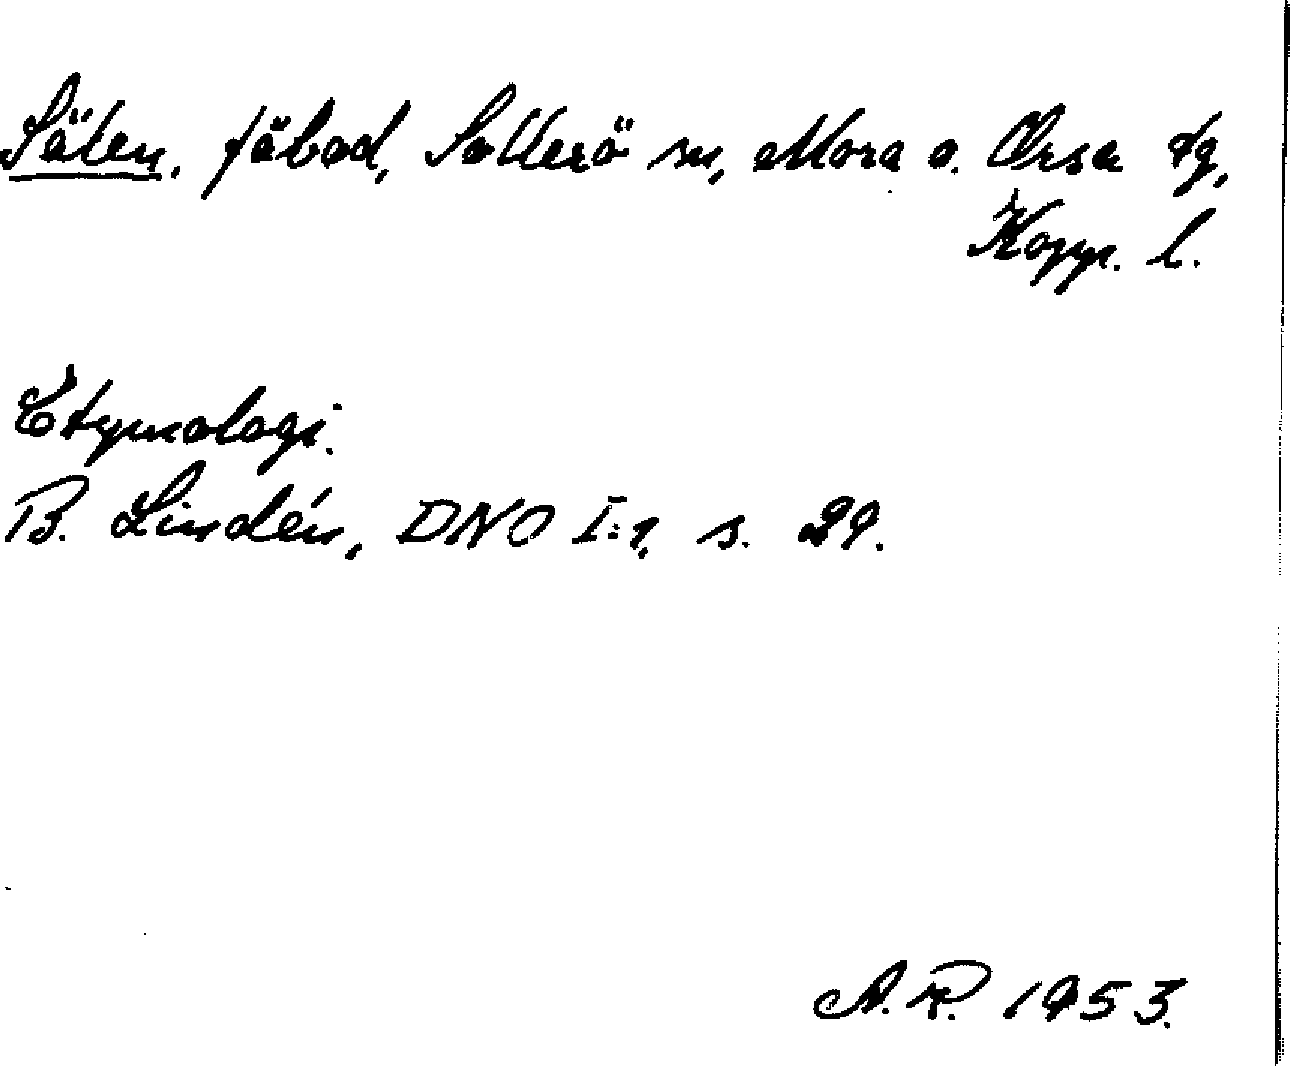 Säten, fäbod, Sollerö sn, Mora o. Orsa tg,
Kopp. l.
Etymologi.
B. Lindén, DNO I:1, s. 29.
A. R. 1953.